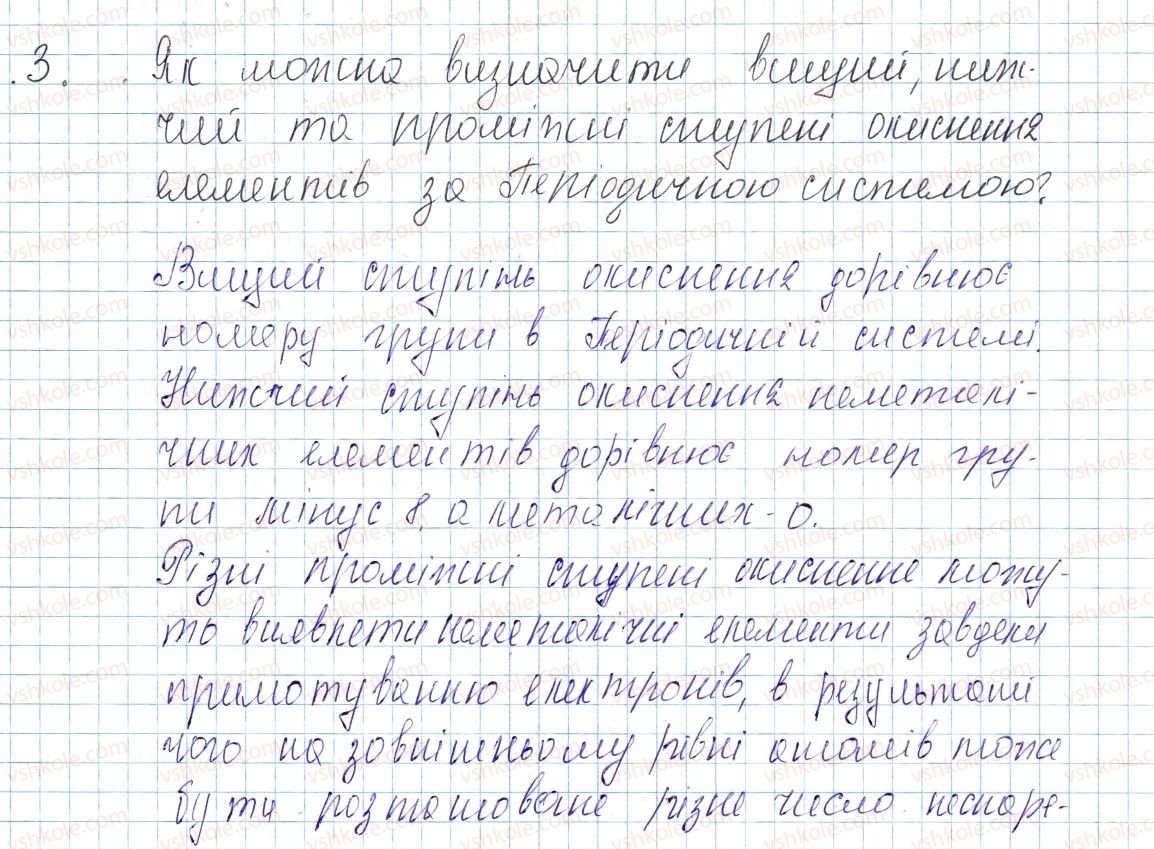 3. Як можна визначити вищий, ниж-
чий та проміжні ступені окиснення
елементів за Періодичною системою?
Вищий ступінь окиснення дорівнює
номеру групи в Періодичній системі.
Нижчий ступінь окиснення неметалі-
чних елементів дорівнює номер гру-
пи мінус 8, а металічних - 0.
Різні проміжні ступені окиснення можу-
ть виявляти неметалічні елементи завдяки
промотуванню електронів, в результаті
чого на зовнішньому рівні атомів може
бути розташоване різне число неспаре-